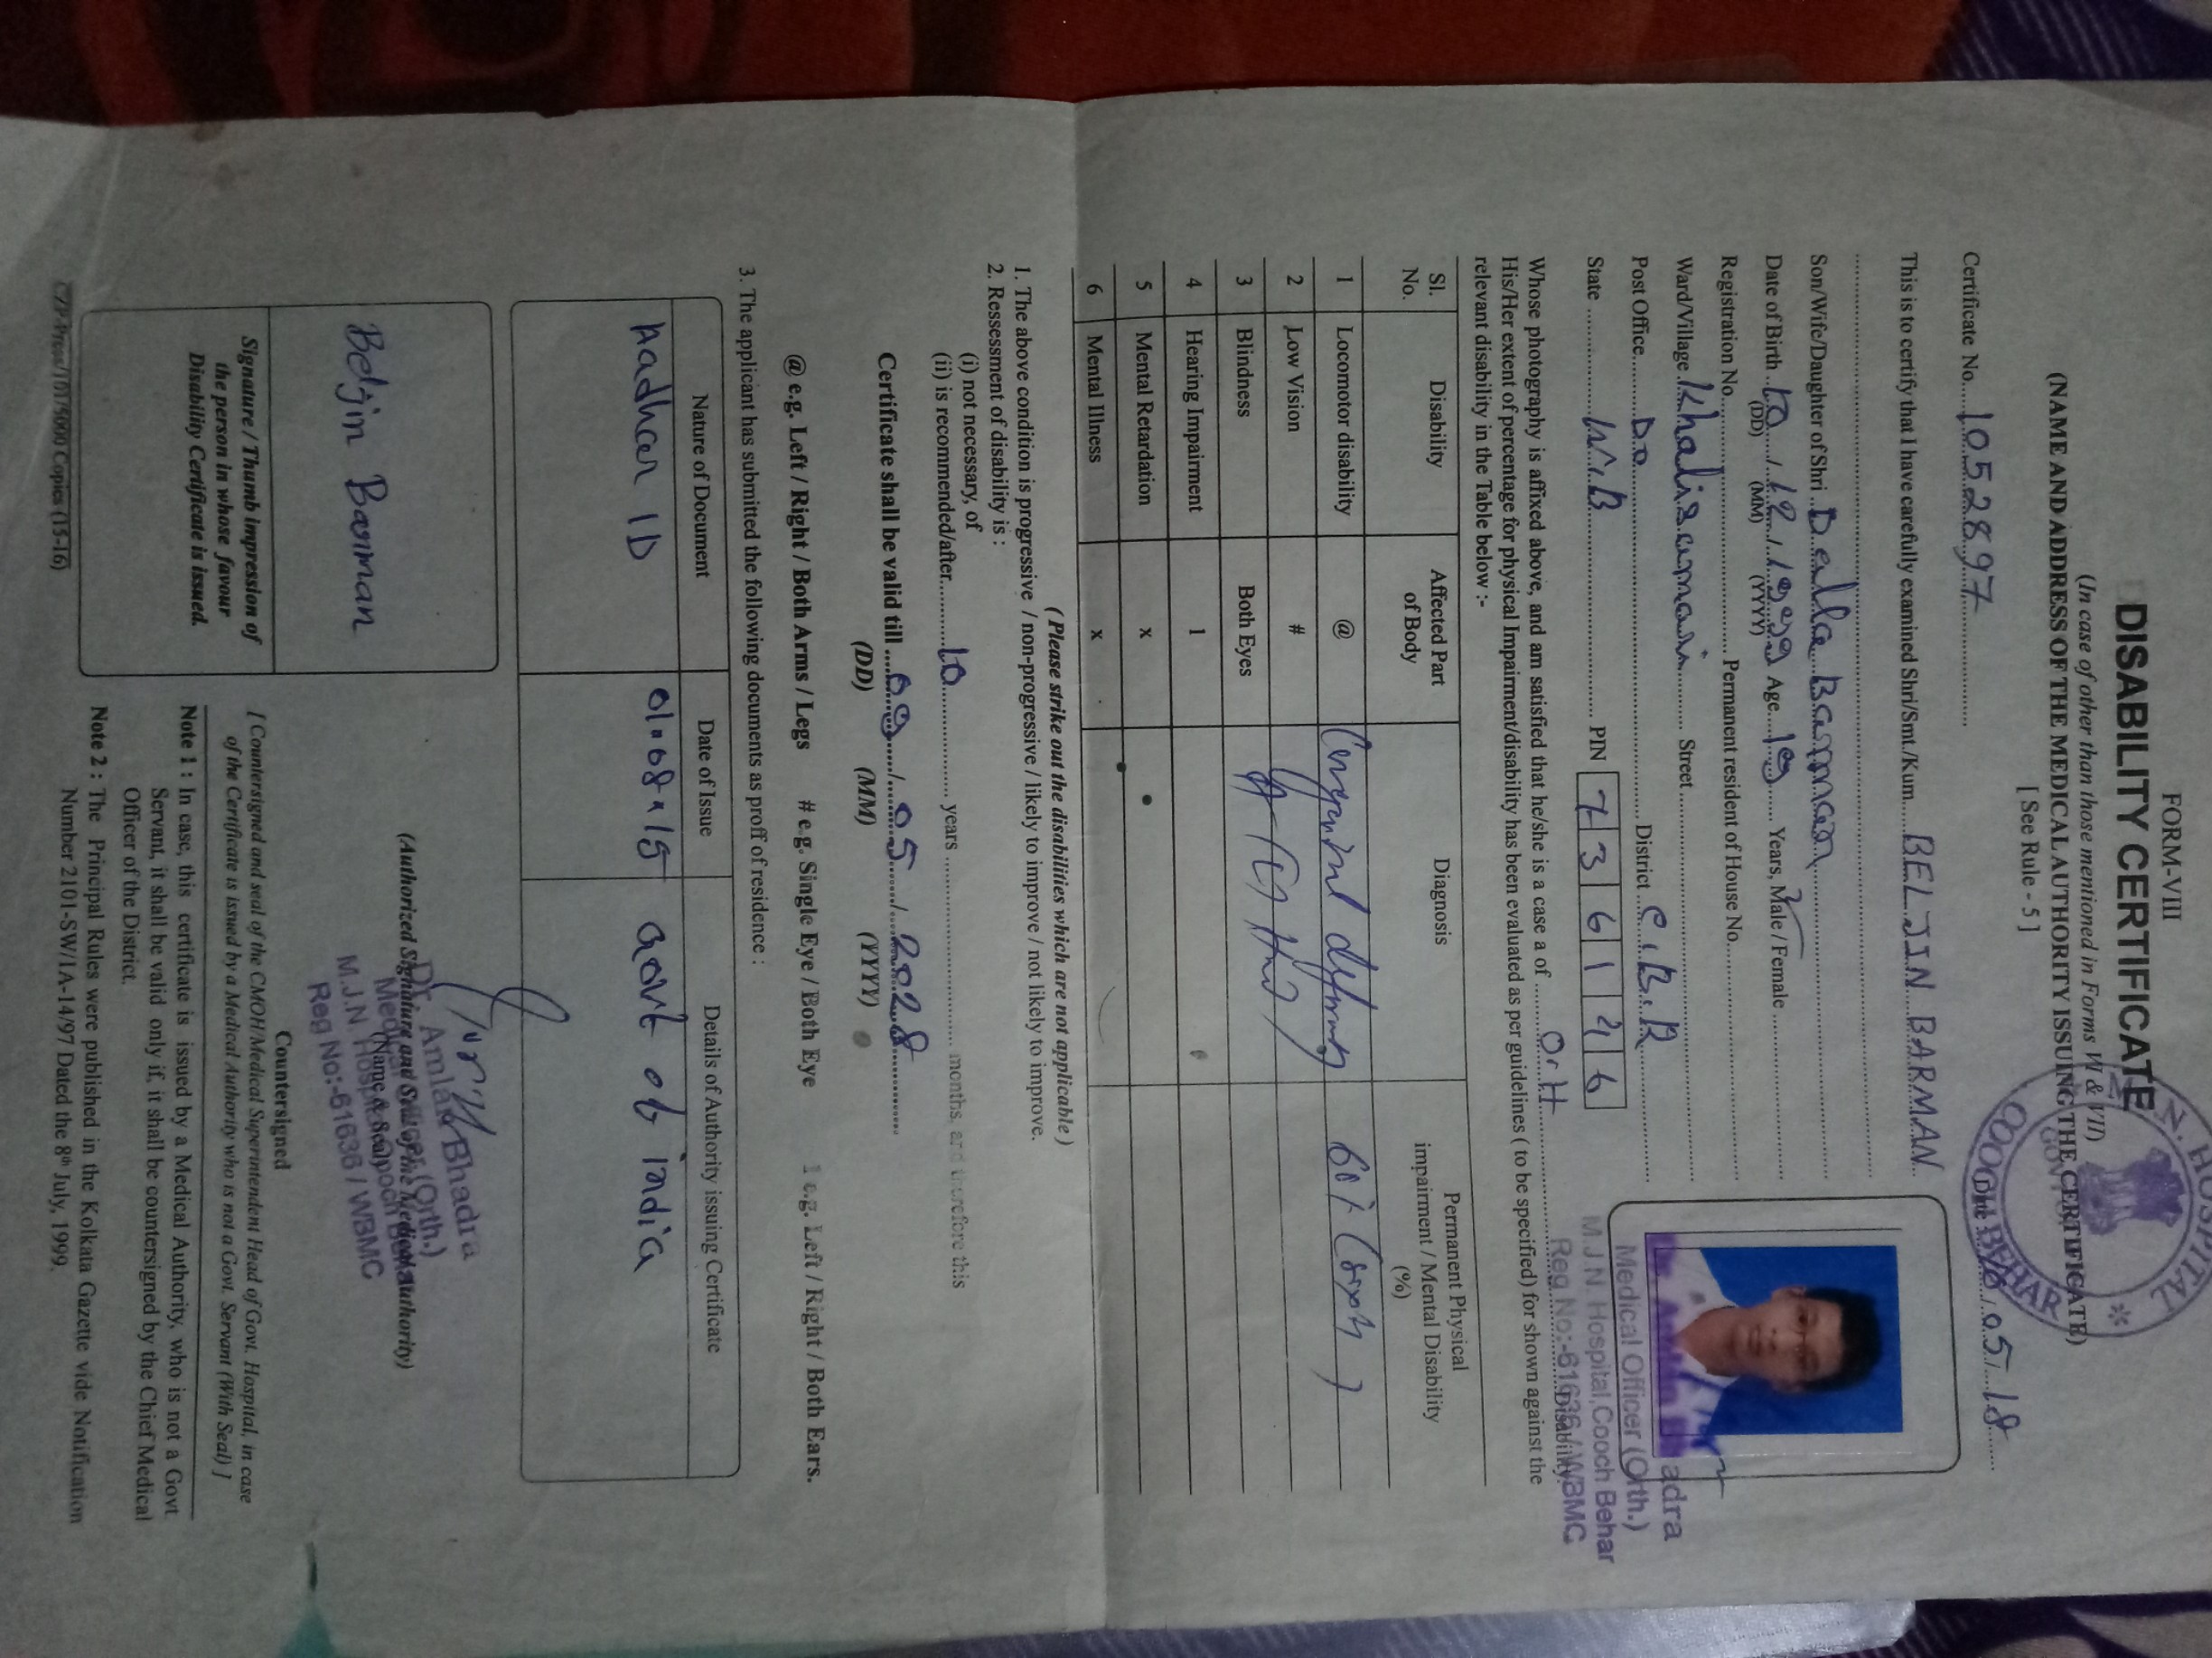 FORM-VIII
DISABILITY CERTIFICATE
(In case of other than those mentioned in Forms VI & VII)
(NAME AND ADDRESS OF THE MEDICAL AUTHORITY ISSUING THE CERTIFICATE)
[ See Rule - 5 ]
Certificate No. 1052897
Date /05/18
This is to certify that I have carefully examined Shri/Smt./Kum. BELJIN BARMAN
Son/Wife/Daughter of Shri Barman
Date of Birth 10 / 12 / 1999 Age 19 Years, Male / Female
(DD) (MM) (YYYY)
Registration No. Permanent resident of House No.
Ward/Village Khalisamari Street
Post Office D.O District C.B.R
State W.B PIN 736146
Medical Officer (Orth.)
M.J.N. Hospital, Cooch Behar
Reg No:-61636/WBMC
Whose photography is affixed above, and am satisfied that he/she is a case a of OrH Disability.
His/Her extent of percentage for physical Impairment/disability has been evaluated as per guidelines ( to be specified) for shown against the
relevant disability in the Table below :-
Sl. No. Disability Affected Part of Body Diagnosis Permanent Physical impairment / Mental Disability (%)
1 Locomotor disability @ 60%
2 Low Vision #
3 Blindness Both Eyes
4 Hearing Impairment 1
5 Mental Retardation x
6 Mental Illness x
( Please strike out the disabilities which are not applicable )
1. The above condition is progressive / non-progressive / likely to improve / not likely to improve.
2. Ressessment of disability is :
(i) not necessary, of
(ii) is recommended/after 10 years months, and therefore this
Certificate shall be valid till 09 / 05 / 2028
(DD) (MM) (YYYY)
@ e.g. Left / Right / Both Arms / Legs # e.g. Single Eye / Both Eye 1 e.g. Left / Right / Both Ears.
3. The applicant has submitted the following documents as proff of residence :
Nature of Document Date of Issue Details of Authority issuing Certificate
Aadhar ID 01.08.15 Govt of india
Dr. Amlan Bhadra
(Authorized Signature and Seal of the Medical Authority)
M.J.N Hospital
Reg No:-61636 / WBMC
Beljin Barman
Signature / Thumb impression of
the person in whose favour
Disability Certificate is issued.
Countersigned
[ Countersigned and seal of the CMOH/Medical Superintendent Head of Govt. Hospital, in case
of the Certificate is issued by a Medical Authority who is not a Govt. Servant (With Seal) ]
Note 1 : In case, this certificate is issued by a Medical Authority, who is not a Govt
Servant, it shall be valid only if, it shall be countersigned by the Chief Medical
Officer of the District.
Note 2 : The Principal Rules were published in the Kolkata Gazette vide Notification
Number 2101-SW/1A-14/97 Dated the 8th July, 1999.